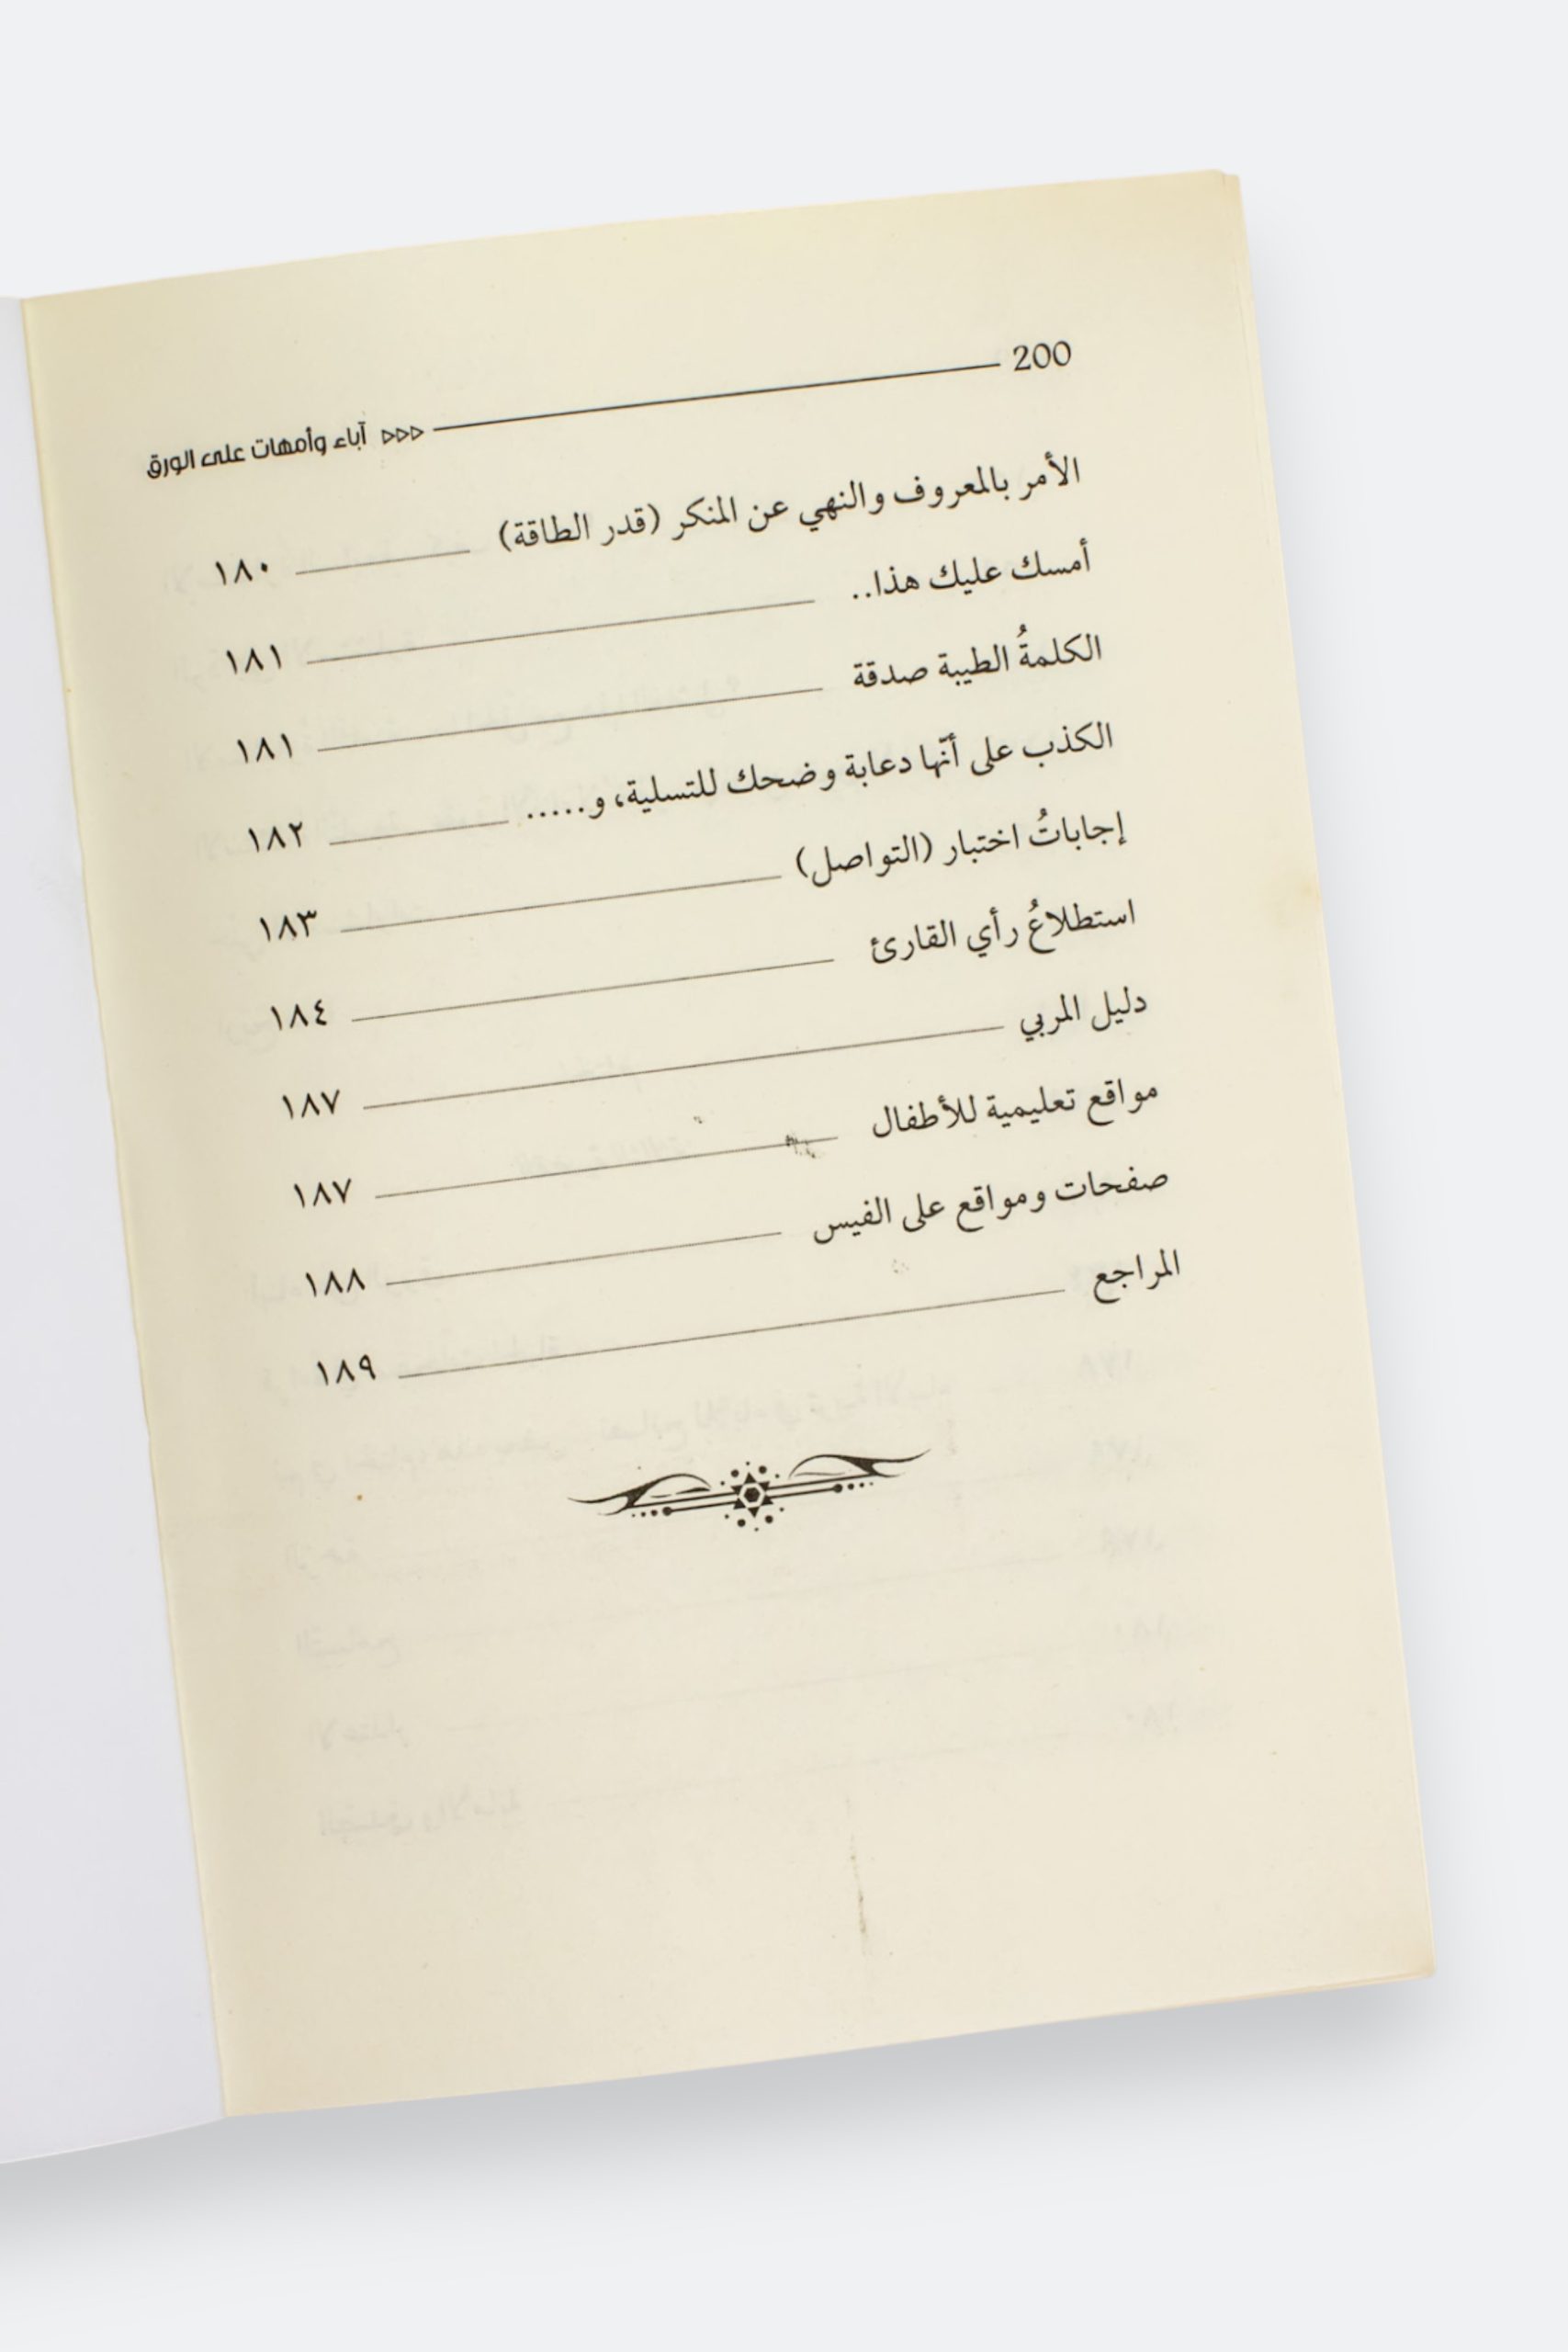 200 ▹▹▹ آباء وأمهات على الورق
الأمر بالمعروف والنهي عن المنكر (قدر الطاقة) ١٨٠
أمسك عليك هذا.. ١٨١
الكلمةُ الطيبة صدقة ١٨١
الكذب على أنّها دعابة وضحك للتسلية، و..... ١٨٢
إجاباتُ اختبار (التواصل) ١٨٣
استطلاعُ رأي القارئ ١٨٤
دليل المربي ١٨٧
مواقع تعليمية للأطفال ١٨٧
صفحات ومواقع على الفيس ١٨٨
المراجع ١٨٩